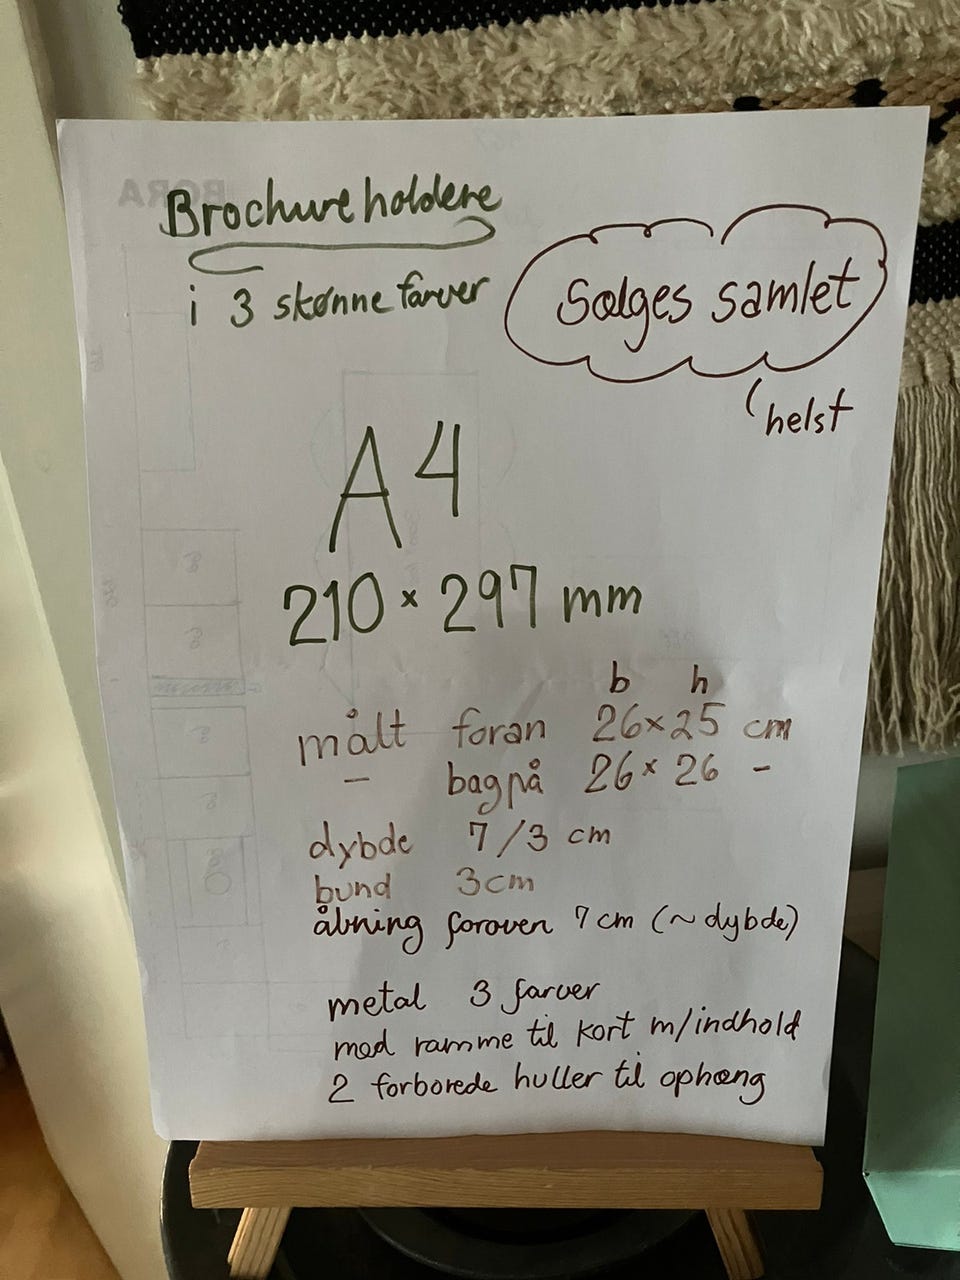 Brochureholdere
i 3 skønne farver
Sælges samlet
(helst
A4
210 × 297 mm
b h
målt foran 26×25 cm
— bagpå 26×26 -
dybde 7/3 cm
bund 3cm
åbning foroven 7 cm (~dybde)
metal 3 farver
med ramme til kort m/indhold
2 forborede huller til ophæng